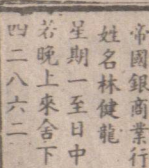 帝國銀商業行
姓名林健龍
星期一至日中
若晚上來舍下
四二八六二